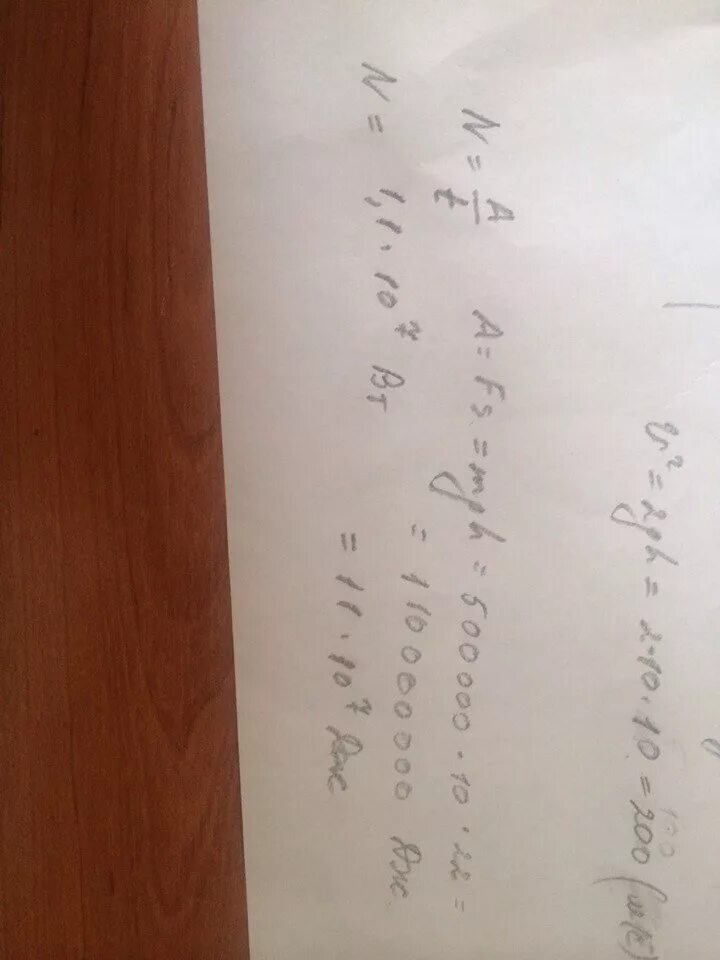 v² = 2gh = 2·10·10 = 200 (м/с)
N = A/t A = Fs = mgh = 500000 · 10 · 22 =
= 110000000 Дж
N = 1,1 · 10⁷ Вт = 11 · 10⁷ Дж